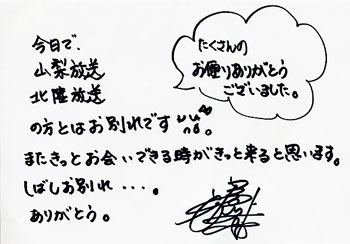 今日で、
山梨放送
北陸放送
の方とはお別れです。
またきっとお会いできる時がきっと来ると思います。
しばしお別れ・・・。
ありがとう。
たくさんの
お便りありがとう
ございました。